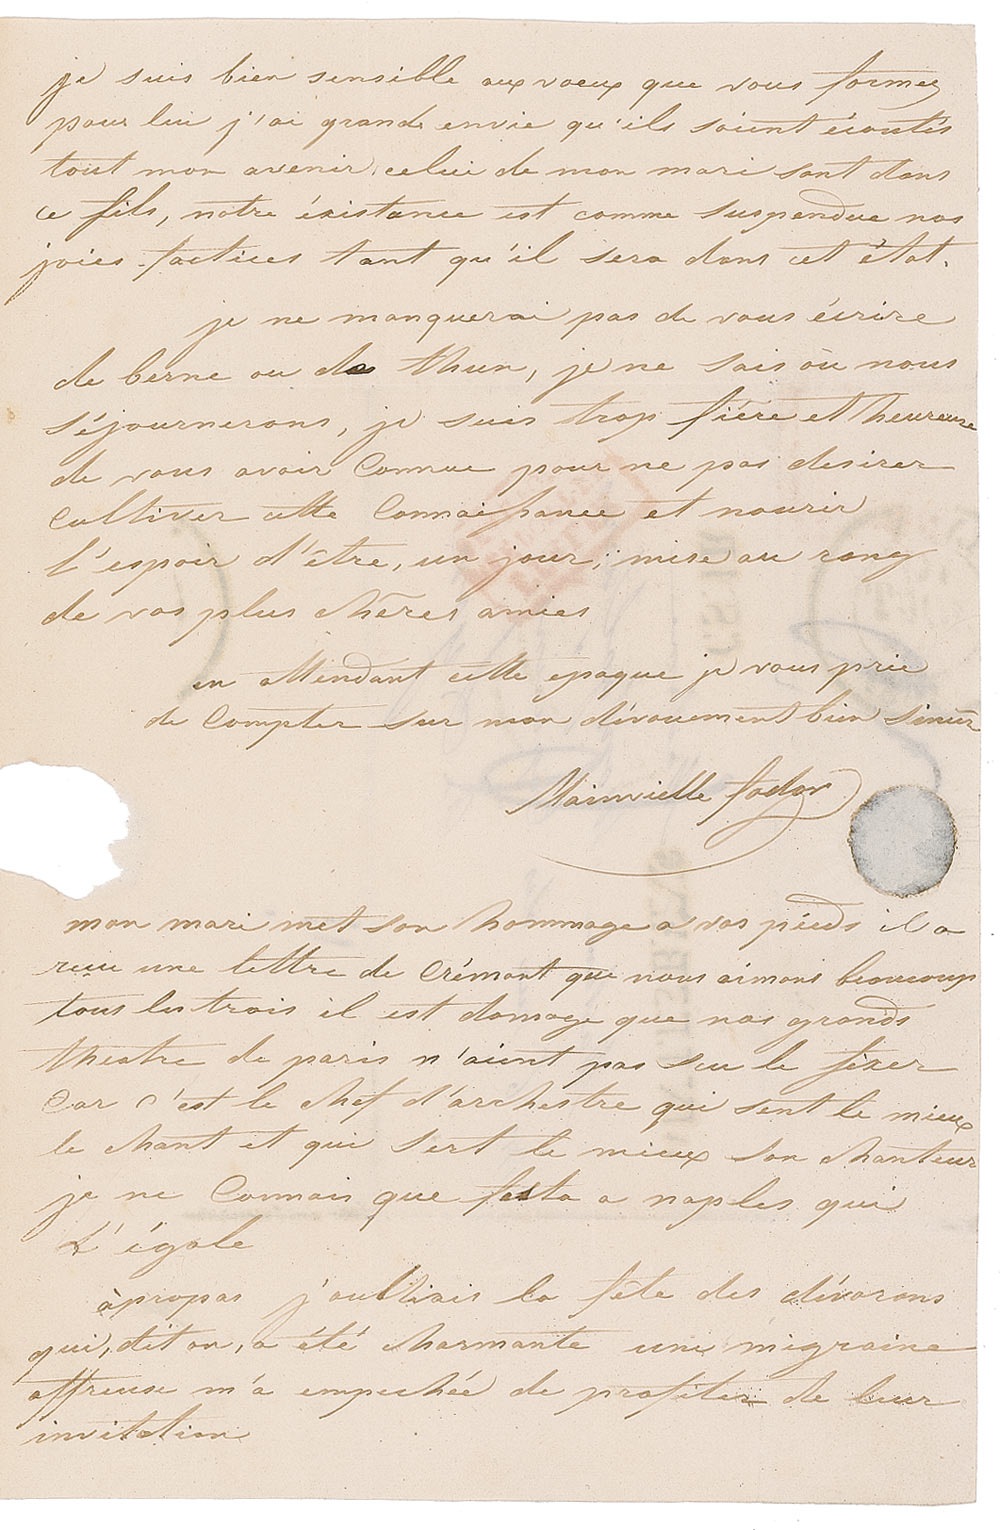 je suis bien sensible aux voeux que vous formez
pour lui j'ai grande envie qu'ils soient écoutés
tout mon avenir, celui de mon mari sont dans
ce fils, notre éxistance est comme suspendue nos
joies factices tant qu'il sera dans cet état.
je ne manquerai pas de vous écrire
de berne ou de thun, je ne sais où nous
séjournerons, je suis trop fière et heureuse
de vous avoir Connue pour ne pas desirer
Cultiver cette Connaissance et nourir
l'espoir d'être, un jour, mise au rang
de vos plus chères amies
en attendant cette epoque je vous prie
de Compter sur mon dévouement bien sincèr
Mainvielle fodor
mon mari met son hommage a vos pieds il a
reçu une lettre de Crémont que nous aimons beaucoup
tous les trois il est domage que nos grands
theatre de paris n'aient pas su le fixer
Car c'est le chef d'orchestre qui sent le mieux
le chant et qui sert le mieux son chanteur
je ne Connais que festa a naples qui
l'égale
àpropos j'oubliais la fête des dévorans
qui, dit on, a été charmante une migraine
affreuse m'a empechée de profiter de leur
invitation